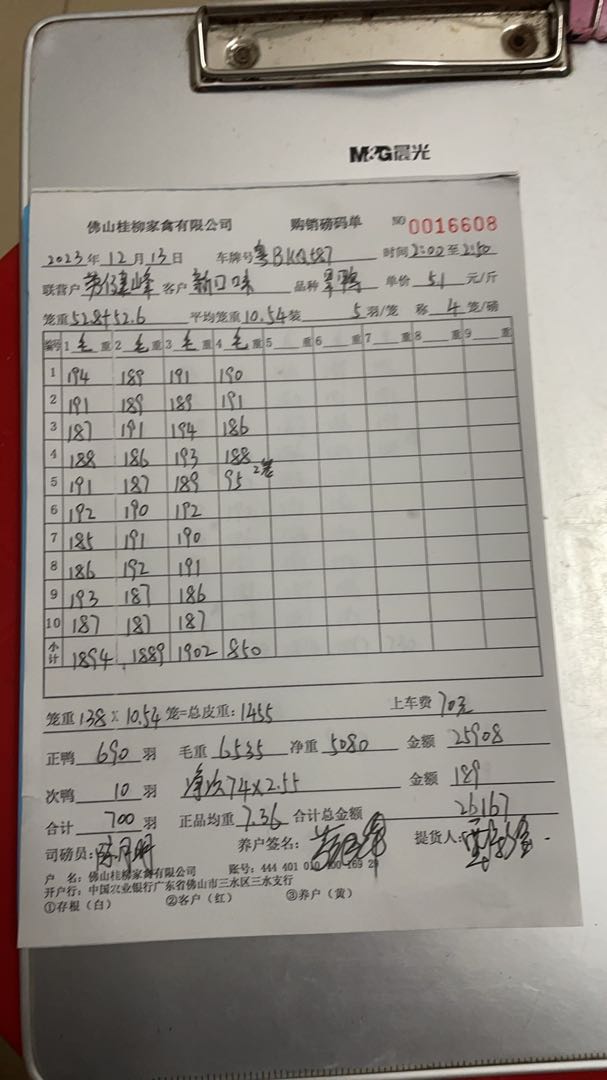 M&G晨光
佛山桂柳家禽有限公司 购销磅码单 NO 0016608
2023年12月13日 车牌号 粤BKQ587 时间2:00至2:50
联营户 客户 新口味 品种 单价 5.1 元/斤
笼重52.8+52.6 平均笼重10.54 装 5 羽/笼 称 4 笼/磅
编号 1 毛 重 2 毛 重 3 毛 重 4 毛 重 5 重 6 重 7 重 8 重 9 重
1 194 189 191 190
2 191 189 189 191
3 187 191 194 186
4 188 186 193 188
5 191 187 189 95 2笼
6 192 190 192
7 185 191 190
8 186 192 191
9 193 187 186
10 187 187 187
小计 1894 1889 1902 850
笼重 138 × 10.54 笼=总皮重: 1455 上车费 70元
正鸭 690 羽 毛重 6535 净重 5080 金额 25908
次鸭 10 羽 净次74×2.55 金额 189
合计 700 羽 正品均重 7.36 合计总金额 26167
司磅员: 养户签名: 提货人:
户 名: 佛山桂柳家禽有限公司 账号: 444 401 010 400 169 29
开户行: 中国农业银行广东省佛山市三水区三水支行
①存根(白) ②客户(红) ③养户(黄)